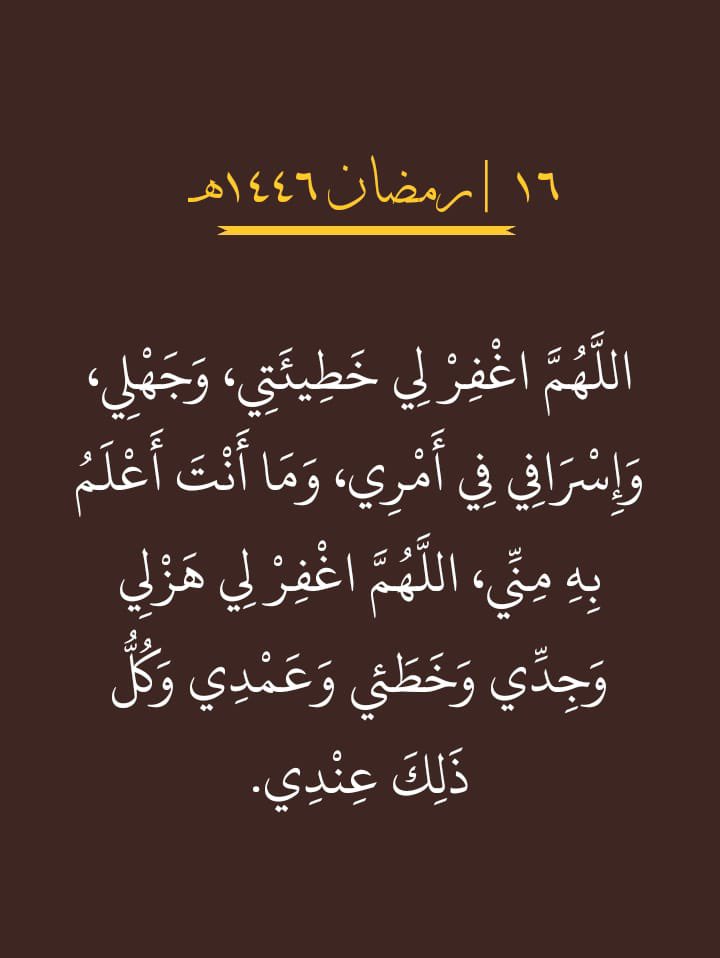 ١٦ | رمضان ١٤٤٦هـ
اللَّهُمَّ اغْفِرْ لِي خَطِيئَتِي، وَجَهْلِي،
وَإِسْرَافِي فِي أَمْرِي، وَمَا أَنْتَ أَعْلَمُ
بِهِ مِنِّي، اللَّهُمَّ اغْفِرْ لِي هَزْلِي
وَجِدِّي وَخَطَئِي وَعَمْدِي وَكُلُّ
ذَلِكَ عِنْدِي.